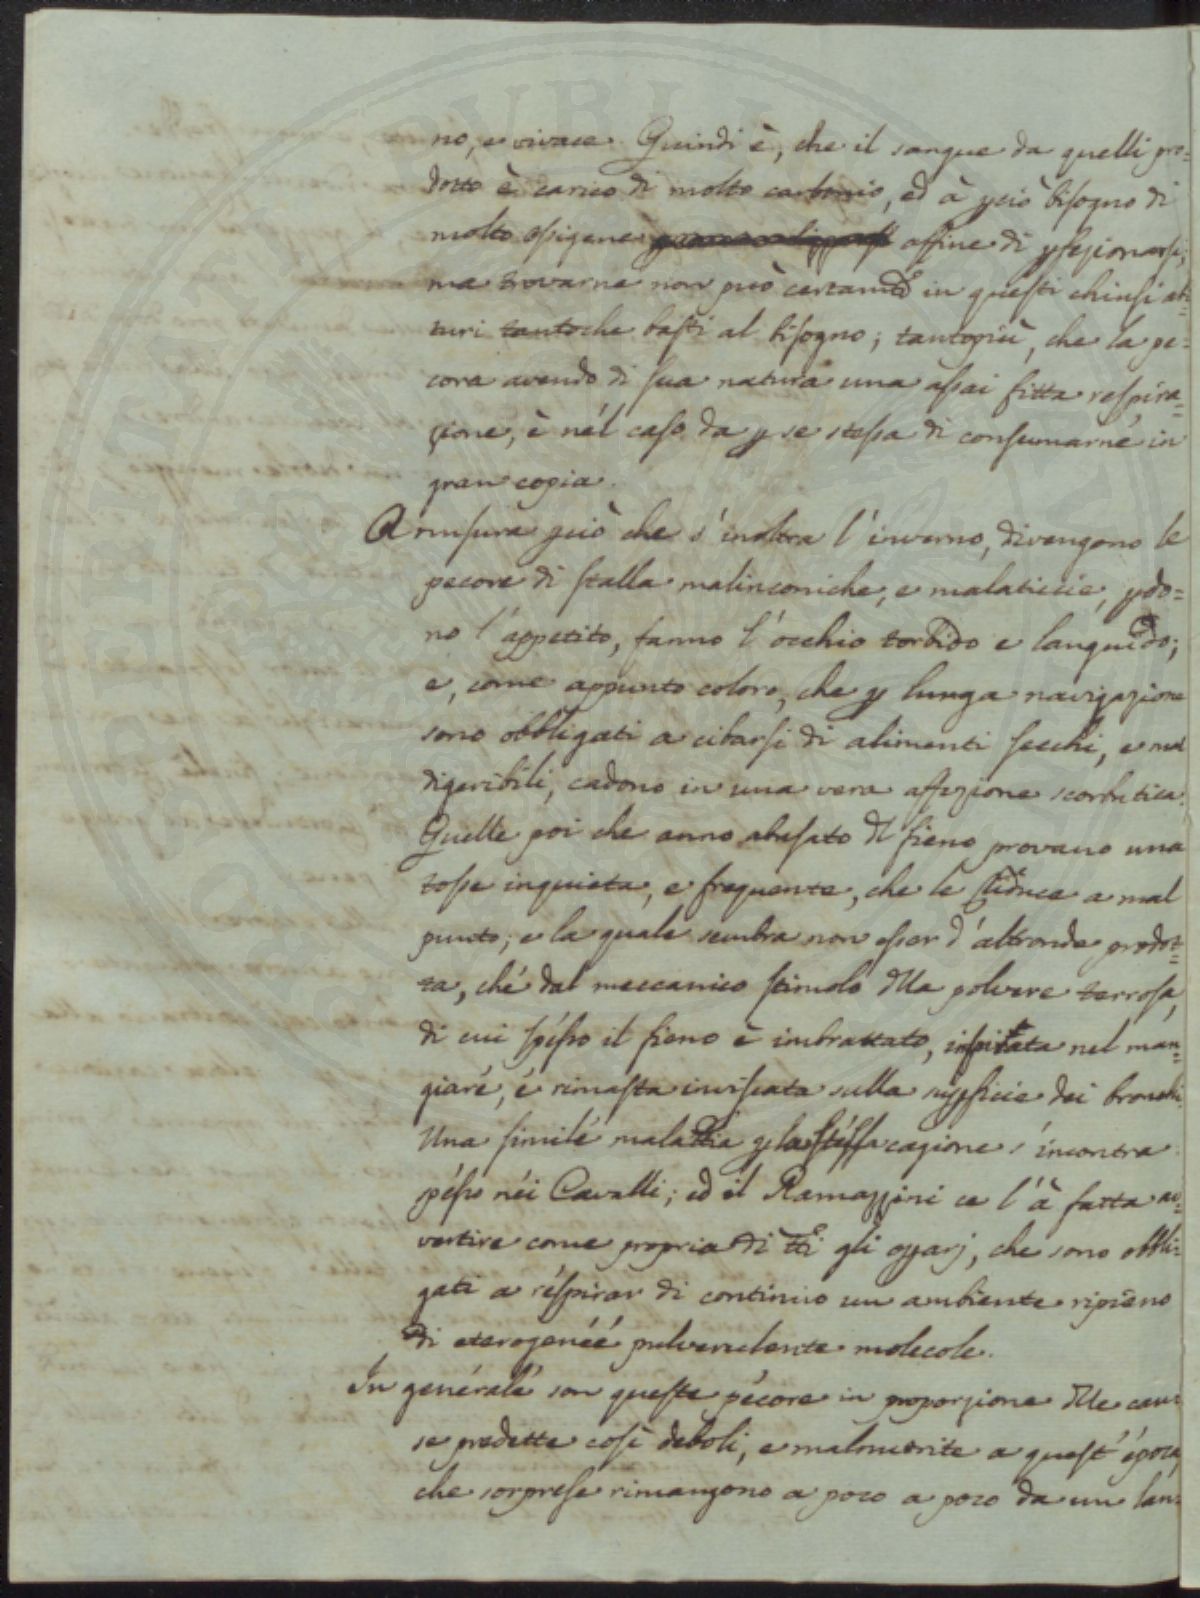 no, e vivace. Quindi è, che il sangue da quelli pro=
dotto è carico di molto carbonio, ed à pciò bisogno di
molto ossigene affine di pfezionarsi;
ma trovarne non può certamte in questi chiusi abi=
turi tantoche basti al bisogno; tantopiù, che la pe=
cora avendo di sua natura una assai fitta respira=
zione, è nel caso da p se stessa di consumarne in
gran copia.
A misura pciò che s'inoltra l'inverno, divengono le
pecore di stalla malinconiche, e malaticcie, pdo=
no l'appetito, fanno l'occhio torbido e languido;
e, come appunto coloro, che p lunga navigazione
sono obbligati a cibarsi di alimenti secchi, e mal
digeribili, cadono in una vera affezione scorbutica.
Quelle poi che anno abusato dl fieno provano una
tosse inquieta, e frequente, che le riduce a mal
punto; e la quale sembra non esser d'altronde prodot=
ta, ché dal meccanico stimolo dlla polvere terrosa,
di cui spesso il fieno è imbrattato, inspirata nel man=
giare, e rimasta inviscata sulla supficie dei bronchi.
Una simile malattia p la stessa cagione s'incontra
spesso néi Cavalli; ed il Ramazzini ce l'à fatta av=
vertire come propria di tti gli opparj, che sono obbli=
gati a réspirar di continuo un ambiente ripieno
di eterogenéé pulverulente molecole.
In générale son queste pécore in proporzione dlle cau=
se predette così deboli, e malnutrite a quest'época,
che sorprese rimangono a poco a poco da un lan=